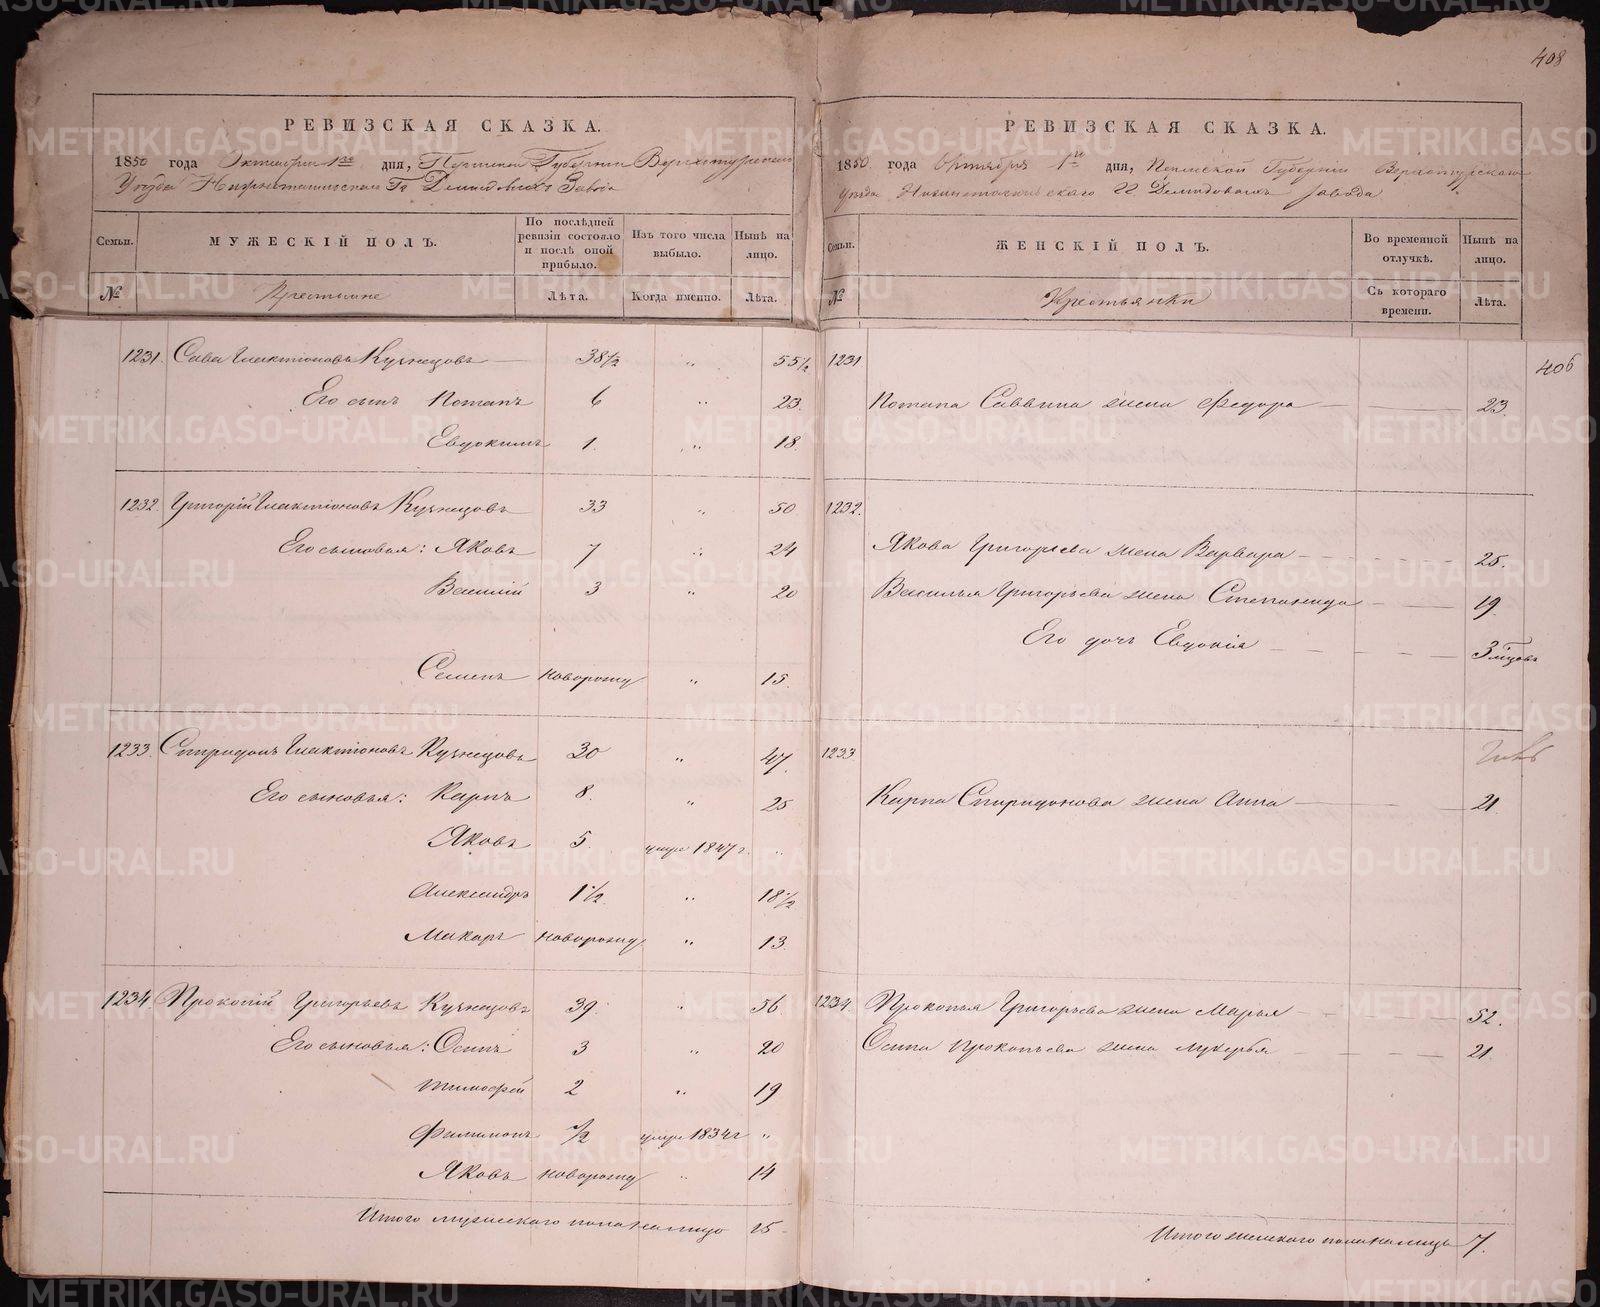 408
РЕВИЗСКАЯ СКАЗКА.
1850 года Октября 1го дня, Пермской Губернии Верхотурскаго
Уезда Нижнетагильскаго Гг Демидовыхъ Завода
Семьи. МУЖЕСКІЙ ПОЛЪ. По послѣдней ревизіи состояло и послѣ оной прибыло. Изъ того числа выбыло. Нынѣ на лицо.
№ Крестьяне Лѣта. Когда именно. Лѣта.
1231. Сава Галактіоновъ Кузнецовъ 38 1/2 " 55 1/2
Его сынъ Потапъ 6 " 23.
Евдокимъ 1. " 18.
1232. Григорій Галактіоновъ Кузнецовъ 33 " 50
Его сыновья: Яковъ 7 " 24
Василій 3 " 20
Семенъ новорожд " 15.
1233. Спиридонъ Галактіоновъ Кузнецовъ 30 " 47.
Его сыновья: Карпъ 8. " 25
Яковъ 5. умре 1847 г. "
Александръ 1 1/2. " 18 1/2
Макаръ новорожд " 13.
1234. Прокопій Григорьевъ Кузнецовъ 39. " 56
Его сыновья: Осипъ 3 " 20
Тимофей 2 " 19
Филимонъ 1/2 умре 1834 г "
Яковъ новорожд " 14
Итого мужескаго пола на лицо 15
РЕВИЗСКАЯ СКАЗКА.
1850 года Октября 1го дня, Пермской Губерніи Верхотурскаго
уезда Нижнетагильскаго ГГ Демидовыхъ завода
Семьи. ЖЕНСКІЙ ПОЛЪ. Во временной отлучкѣ. Нынѣ на лицо.
№ Крестьянки Съ котораго времени. Лѣта.
406
1231
Потапа Саввина жена Федора 23.
1232.
Якова Григорьева жена Варвара 25.
Василья Григорьева жена Степанида 19.
Его дочь Евдокія 3 мѣсцовъ
1233
Карпа Спиридонова жена Анна 21.
1234. Прокопья Григорьева жена Марья 52.
Осипа Прокопьева жена Лукерья 21.
Итого женскаго пола на лицо 7.
METRIKI.GASO-URAL.RU